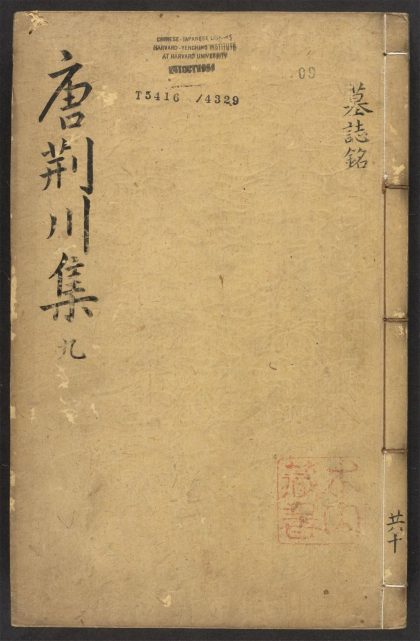 唐荆川集
九
墓誌銘
共十
CHINESE-JAPANESE LIBRARY
HARVARD-YENCHING INSTITUTE
AT HARVARD UNIVERSITY
T5416 /4329
09
藏書